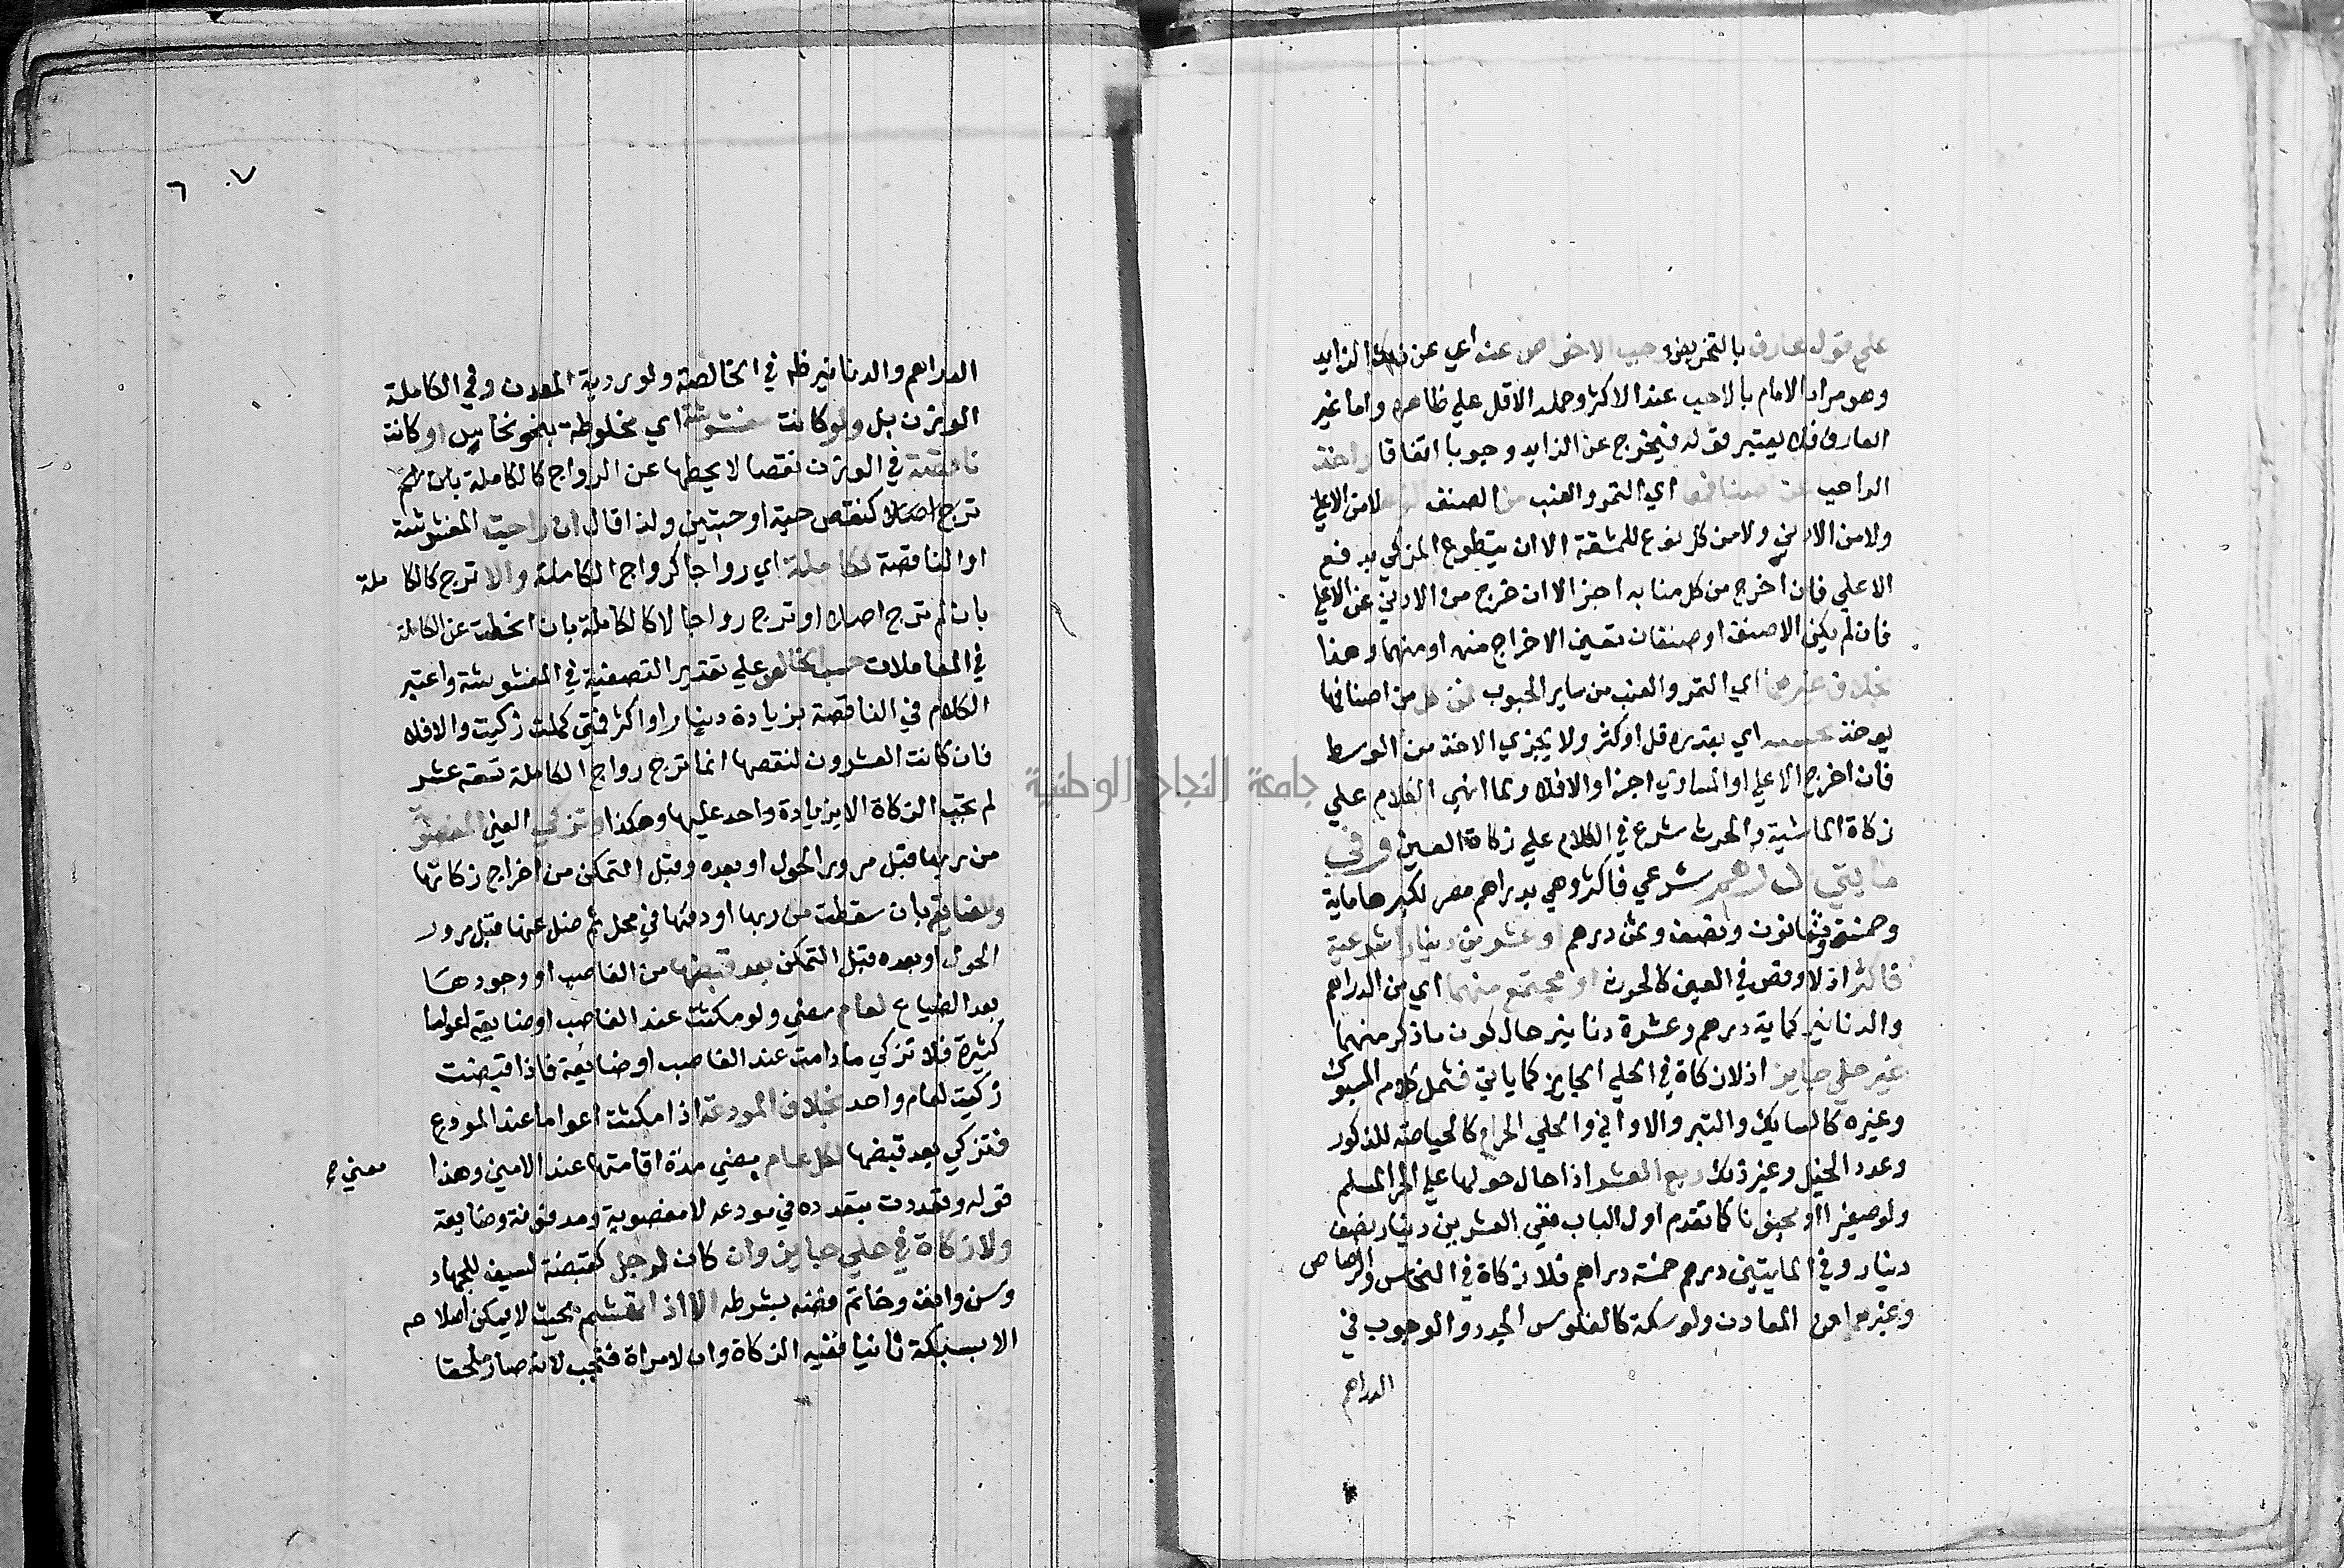 علي قول عارف بالتخريص وجب الاخراص عنه اي عن ذلك الزايد
وهو مراد الامام بالاحب عند الاكثر وحمله الاقل علي ظاهره واما غير
العارف فلا يعتبر قوله فيخرج عن الزايد وجوبا اتفاقا واخذ
الواجب عن اصنافهما اي التمر والعنب من الصنف لا من الاعلي
ولا من الادني ولا من كل نوع للمشقة الا ان يتطوع المزكي بدفع
الاعلي فان اخرج من كل منابه اجزا الا ان خرج من الادني عن الاعلي
فان لم يكن الا صنف او صنفان تعين الاخراج منه او منهما وهذا
بخلاف غيرهما اي التمر والعنب من ساير الحبوب فمن كل من اصنافها
يوخذ بحسبه اي بقدره قل او كثر ولا يجزي الاخذ من الوسط
فان اخرج الاعلي او المساوي اجزا والا فلا ولما انهي الكلام علي
زكاة الماشية والحرث شرع في الكلام علي زكاة العين وفي
مايتي درهم شرعي فاكثر وهي بدراهم مصر لكبرها ماية
وخمسة وثمانون ونصف وثمن درهم او عشرين دينارا شرعية
فاكثر اذ لا وقص في العين كالحرث او مجتمع منهما اي من الدراهم
والدنانير كماية درهم وعشرة دنانير حال كون ما ذكر منهما
غير حلي جايز اذ لا زكاة في الحلي الجايز كما ياتي فشمل كلامه المسبوك
وغيره كالسبايك والتبر والاواني والحلي الحرام كالحياصة للذكور
وعدد الخيل وغير ذلك ربع العشر اذا حال حولها علي الحر المسلم
ولو صغيرا او مجنونا كما تقدم اول الباب ففي العشرين دينار نصف
دينار وفي المايتين درهم خمسة دراهم فلا زكاة في النحاس والرصاص
وغيرهما من المعادن ولو سكة كالفلوس الجدد والوجوب في
الدراهم
٧٠ ٦
الدراهم والدنانير ظ في الخالصة ولو ردية المعدن وفي الكاملة
الوزن بل ولو كانت مغشوشة اي مخلوطة بنحو نحاس او كانت
ناقصة في الوزن نقصا لا يحطها عن الرواج كالكاملة بان لم
ترج اصلا كنقص حبة او حبتين ولذا قال ان راجت المغشوشة
او الناقصة ككاملة اي رواجا كرواج الكاملة والا ترج كالكاملة
بان لم ترج اصلا او ترج رواجا لا كالكاملة بان انحطت عن الكاملة
في المعاملات حسب الخالص علي تقدير التصفية في المغشوشة واعتبر
الكلام في الناقصة بزيادة دينار او اكثر فمتي كملت زكيت والا فلا
فان كانت العشرون لنقصها انما ترج رواج الكاملة تسعة عشر
لم تجب الزكاة الا بزيادة واحد عليها وهكذا وتزكي العين المغصوبة
من ربها قبل مرور الحول او بعده وقبل التمكن من اخراج زكاتها
والضايعة بان سقطت من ربها او دفنها في محل ثم ضل عنها قبل مرور
الحول او بعده قبل التمكن بعد قبضها من الغاصب او وجودها
بعد الضياع لعام مضي ولو مكثت عند الغاصب او ضايعة اعواما
كثيرة فلا تزكي ما دامت عند الغاصب او ضايعة فاذا قبضت
زكيت لعام واحد بخلاف المودعة اذا مكثت اعواما عند المودع
فتزكي بعد قبضها لكل عام مضي مدة اقامتها عند الامين وهذا معني
قوله وتعددت بتعدده في مودعه لا مغصوبة ومدفونة وضايعة
ولا زكاة في حلي جايز وان كان لرجل كقبضة لسيف للجهاد
وسن وانف وخاتم فضة بشرطه الا اذا تهشم بحيث لا يمكن اصلاحه
الا بسبكه ثانيا ففيه الزكاة وان لامراة فتجب لانه صار ملحقا
جامعة النجاح الوطنية